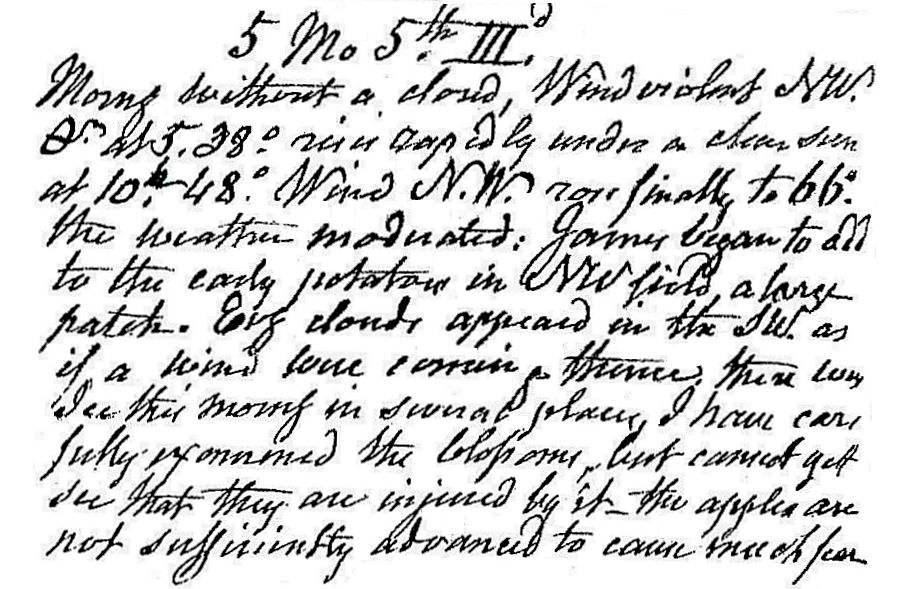 5 Mo 5.th III.d
Morng without a cloud, Wind violent NW.
at 5. 38° rising rapidly under a clear sun
at 10.h 48.° Wind N.W. rose finally to 66°.
the weather moderated: James began to add
to the early potatoes in NW field, a large
patch. Evg clouds appeared in the SW. as
if a wind were coming thence. there was
Ice this morng in several places, I have care
fully examined the blossoms, but cannot yett
see that they are injured by it – the apples are
not sufficiently advanced to cause much fear